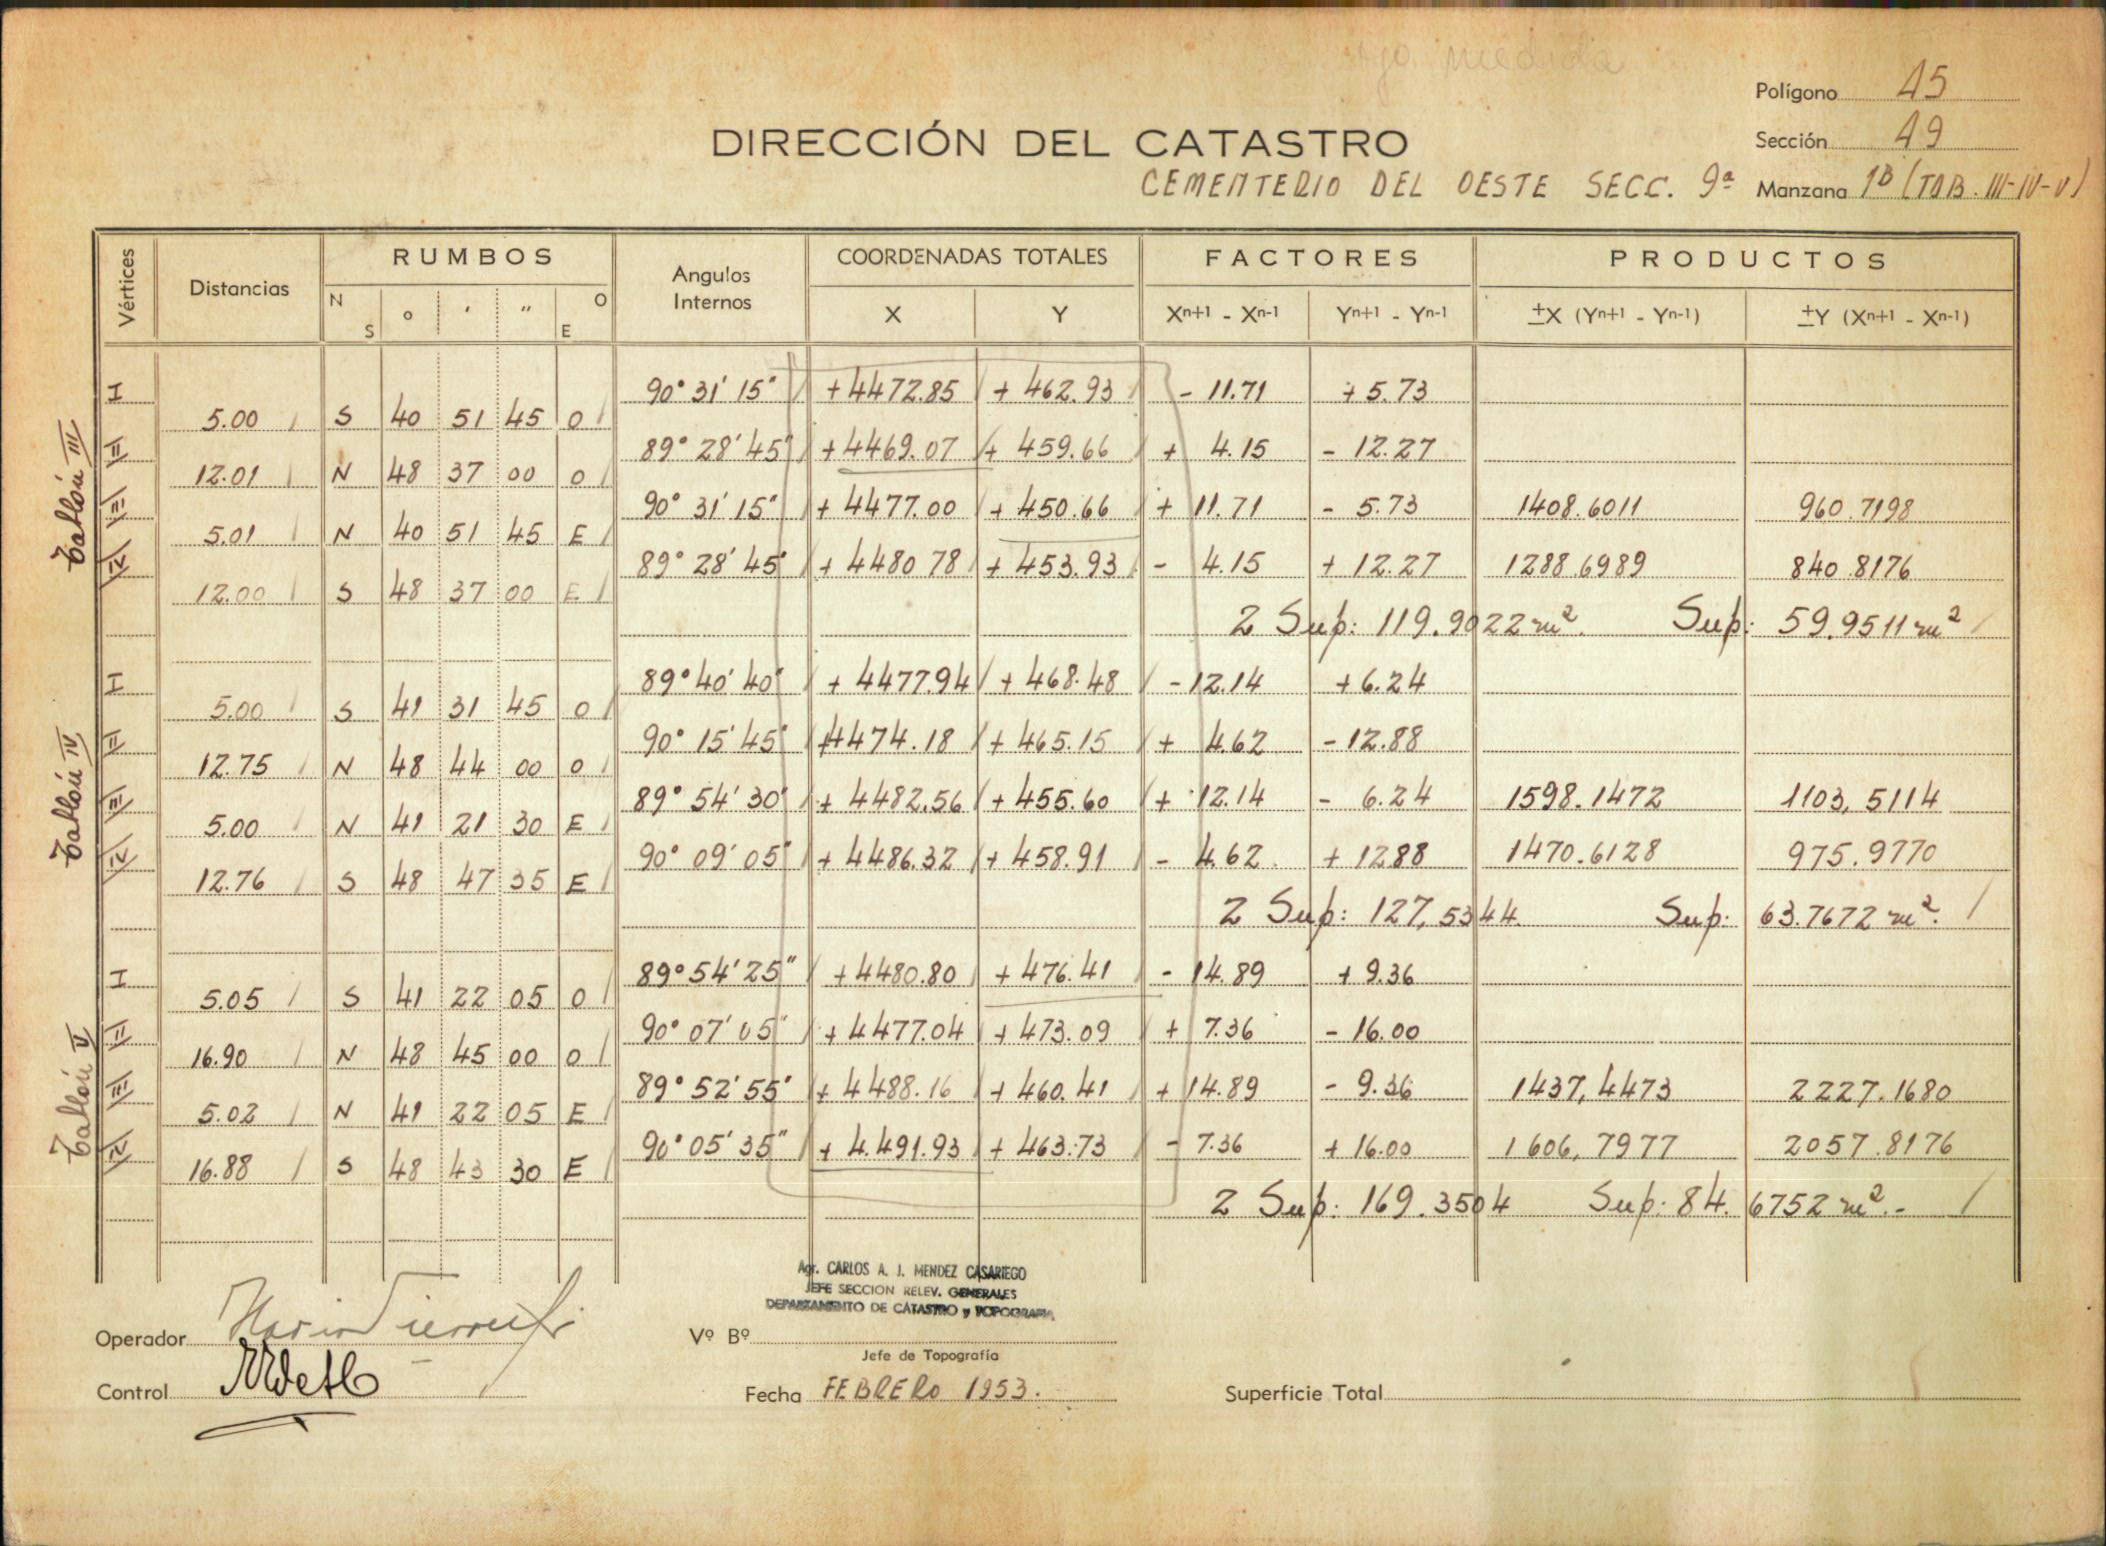 Polígono 45
DIRECCIÓN DEL CATASTRO
Sección 49
CEMENTERIO DEL OESTE SECC. 9ª Manzana 1B (TAB. III-IV-V)
Vértices Distancias RUMBOS Angulos Internos COORDENADAS TOTALES FACTORES PRODUCTOS
N S o ' " O E X Y Xn+1 - Xn-1 Yn+1 - Yn-1 ±X (Yn+1 - Yn-1) ±Y (Xn+1 - Xn-1)
Tablón III
I 90° 31' 15" +4472.85 + 462.93 - 11.71 + 5.73
5.00 S 40 51 45 O
II 89° 28' 45" +4469.07 + 459.66 + 4.15 - 12.27
12.01 N 48 37 00 O
III 90° 31' 15" + 4477.00 + 450.66 + 11.71 - 5.73 1408.6011 960.7198
5.01 N 40 51 45 E
IV 89° 28' 45" + 4480 78 + 453.93 - 4.15 + 12.27 1288.6989 840.8176
12.00 S 48 37 00 E
2 Sup: 119.9022 m². Sup: 59.9511 m²
Tablón IV
I 89° 40' 40" + 4477.94 + 468.48 - 12.14 + 6.24
5.00 S 41 31 45 O
II 90° 15' 45" +4474.18 + 465.15 + 4.62 - 12.88
12.75 N 48 44 00 O
III 89° 54' 30" + 4482.56 + 455.60 + 12.14 - 6.24 1598.1472 1103,5114
5.00 N 41 21 30 E
IV 90° 09' 05" + 4486.32 + 458.91 - 4.62 + 1288 1470.6128 975.9770
12.76 S 48 47 35 E
2 Sup: 127,5344. Sup: 63.7672 m².
Tablón V
I 89° 54' 25" +4480.80 + 476.41 - 14.89 + 9.36
5.05 S 41 22 05 O
II 90° 07' 05" + 4477.04 + 473.09 + 7.36 - 16.00
16.90 N 48 45 00 O
III 89° 52' 55" + 4488.16 + 460.41 + 14.89 - 9.36 1437,4473 2227.1680
5.02 N 41 22 05 E
IV 90° 05' 35" + 4.491.93 + 463.73 - 7.36 + 16.00 1606,7977 2057.8176
16.88 S 48 43 30 E
2 Sup: 169.3504 Sup: 84.6752 m².-
Agr. CARLOS A. J. MENDEZ CASARIEGO
JEFE SECCION RELEV. GENERALES
DEPARTAMENTO DE CATASTRO y TOPOGRAFIA
Operador Vº Bº
Jefe de Topografía
Control Fecha FEBRERO 1953. Superficie Total